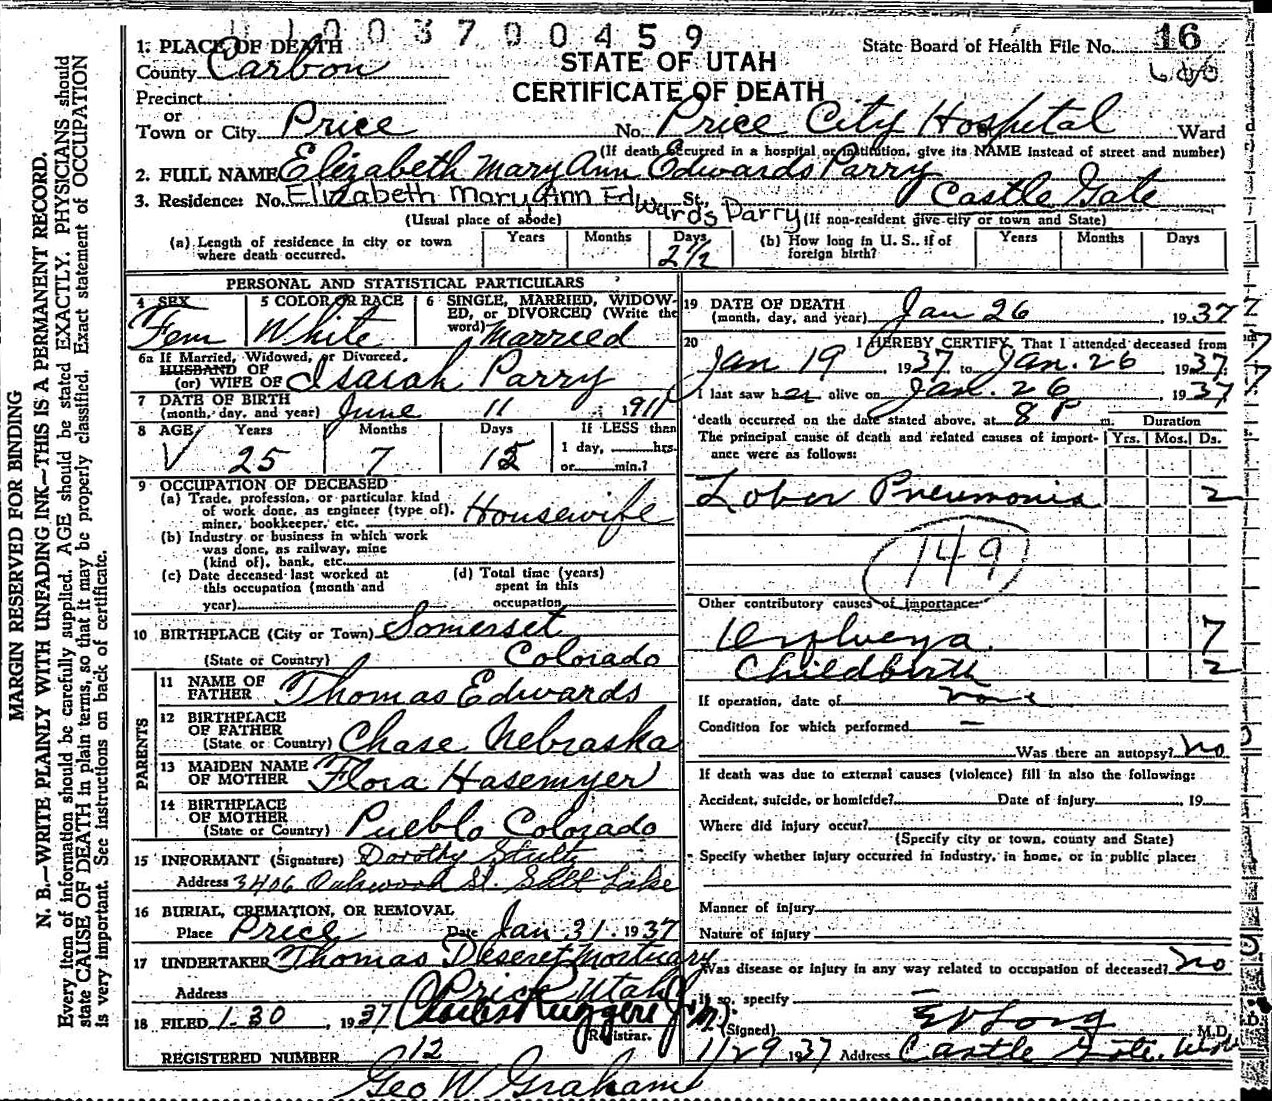 1003700459
1. PLACE OF DEATH
County Carbon
STATE OF UTAH
CERTIFICATE OF DEATH
State Board of Health File No. 16
Precinct
or
Town or City Price No. Price City Hospital Ward
(If death occurred in a hospital or institution, give its NAME instead of street and number)
2. FULL NAME Elizabeth Mary Ann Edwards Parry
3. Residence: No. Elizabeth Mary Ann Edwards Parry St., Castle Gate
(Usual place of abode) (If non-resident give city or town and State)
(a) Length of residence in city or town where death occurred. Years Months Days 2½
(b) How long in U. S., if of foreign birth? Years Months Days
PERSONAL AND STATISTICAL PARTICULARS
4 SEX Fem
5 COLOR OR RACE White
6 SINGLE, MARRIED, WIDOW-
ED, or DIVORCED (Write the
word) Married
6a If Married, Widowed, or Divorced,
HUSBAND OF
(or) WIFE OF Isaiah Parry
7 DATE OF BIRTH
(month, day, and year) June 11, 1911
8 AGE Years 25 Months 7 Days 15 If LESS then
1 day, hrs.
or min.?
9 OCCUPATION OF DECEASED
(a) Trade, profession, or particular kind
of work done, as engineer (type of),
miner, bookkeeper, etc. Housewife
(b) Industry or business in which work
was done, as railway, mine
(kind of), bank, etc.
(c) Date deceased last worked at
this occupation (month and
year)
(d) Total time (years)
spent in this
occupation
10 BIRTHPLACE (City or Town) Somerset
(State or Country) Colorado
PARENTS
11 NAME OF
FATHER Thomas Edwards
12 BIRTHPLACE
OF FATHER
(State or Country) Chase Nebraska
13 MAIDEN NAME
OF MOTHER Flora Hasemyer
14 BIRTHPLACE
OF MOTHER
(State or Country) Pueblo Colorado
15 INFORMANT (Signature) Dorothy Stultz
Address 3406 Oakwood St. Salt Lake
16 BURIAL, CREMATION, OR REMOVAL
Place Price Date Jan 31. 1937
17 UNDERTAKER Thomas Deseret Mortuary
Address Price Utah
18 FILED 1-30, 1937 Charles Ruggeri Jr.
Registrar.
REGISTERED NUMBER 12
Geo W Graham
19 DATE OF DEATH
(month, day, and year) Jan 26, 1937
20 I HEREBY CERTIFY, That I attended deceased from
Jan 19, 1937 to Jan. 26 1937
I last saw her alive on Jan. 26 1937
death occurred on the date stated above, at 8 P m.
Duration
The principal cause of death and related causes of import-
ance were as follows:
Yrs. Mos. Ds.
Lobar Pneumonia 2
149
Other contributory causes of importance:
7
Childbirth 2
If operation, date of none
Condition for which performed –
Was there an autopsy? No
If death was due to external causes (violence) fill in also the following:
Accident, suicide, or homicide? Date of injury, 19
Where did injury occur?
(Specify city or town, county and State)
Specify whether injury occurred in industry, in home, or in public place:
Manner of injury
Nature of injury
Was disease or injury in any way related to occupation of deceased? No
If so, specify –
(Signed) E V Long M.D.
1/29 1937 Address Castle Gate, Utah
MARGIN RESERVED FOR BINDING
N. B.—WRITE PLAINLY WITH UNFADING INK—THIS IS A PERMANENT RECORD.
Every item of information should be carefully supplied. AGE should be stated EXACTLY. PHYSICIANS should
state CAUSE OF DEATH in plain terms, so that it may be properly classified. Exact statement of OCCUPATION
is very important. See instructions on back of certificate.